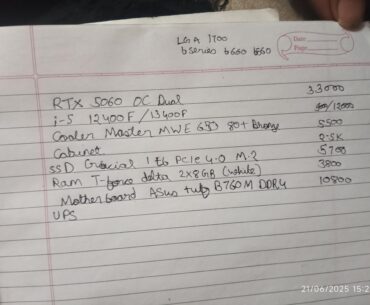 LGA 1700
b series b660 b860
Date
Page
RTX 5060 OC Dual 33000
i-5 12400F/13400F /12000
Cooler Master MWE 80+ Bronze 5500
Cabinet 2.5K
SSD Crucial 1 tb PCIe 4.0 M.2 5700
Ram T-force delta 2x8GB (white) 3800
Motherboard Asus tuf B760M DDR4 10800
UPS
21/06/2025 15:2